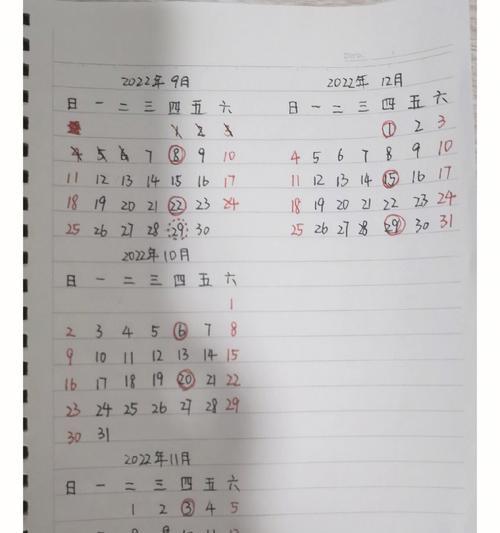 2022年9月
日 一 二 三 四 五 六
1 2 3
4 5 6 7 8 9 10
11 12 13 14 15 16 17
18 19 20 21 22 23 24
25 26 27 28 29 30
2022年10月
日 一 二 三 四 五 六
1
2 3 4 5 6 7 8
9 10 11 12 13 14 15
16 17 18 19 20 21 22
23 24 25 26 27 28 29
30 31
2022年11月
日 一 二 三 四 五 六
1 2 3 4 5
2022年12月
日 一 二 三 四 五 六
1 2 3
4 5 6 7 8 9 10
11 12 13 14 15 16 17
18 19 20 21 22 23 24
25 26 27 28 29 30 31